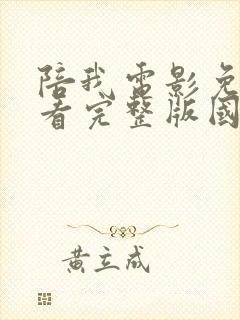 陪我電影免
看完整版國
黃立成